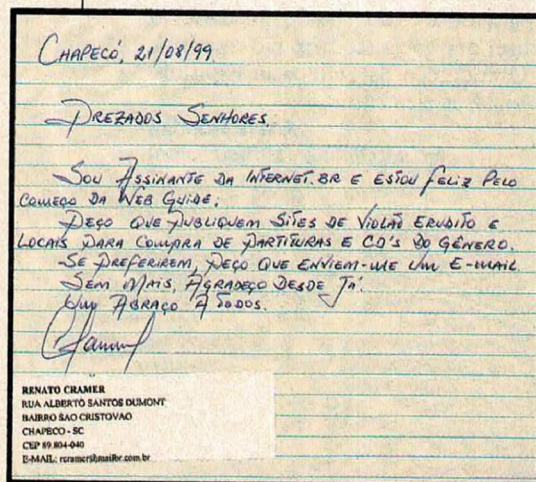 CHAPECÓ, 21/08/99.
PREZADOS SENHORES.
SOU ASSINANTE DA INTERNET.BR E ESTOU FELIZ PELO
COMEÇO DA WEB GUIDE.
PEÇO QUE PUBLIQUEM SITES DE VIOLÃO ERUDITO E
LOCAIS PARA COMPRA DE PARTITURAS E CD'S DO GÊNERO.
SE PREFERIREM, PEÇO QUE ENVIEM-ME UM E-MAIL
SEM MAIS, AGRADEÇO DESDE JÁ.
UM ABRAÇO A TODOS.
RENATO CRAMER
RUA ALBERTO SANTOS DUMONT
BAIRRO SAO CRISTOVAO
CHAPECO - SC
CEP 89.804-040
E-MAIL: